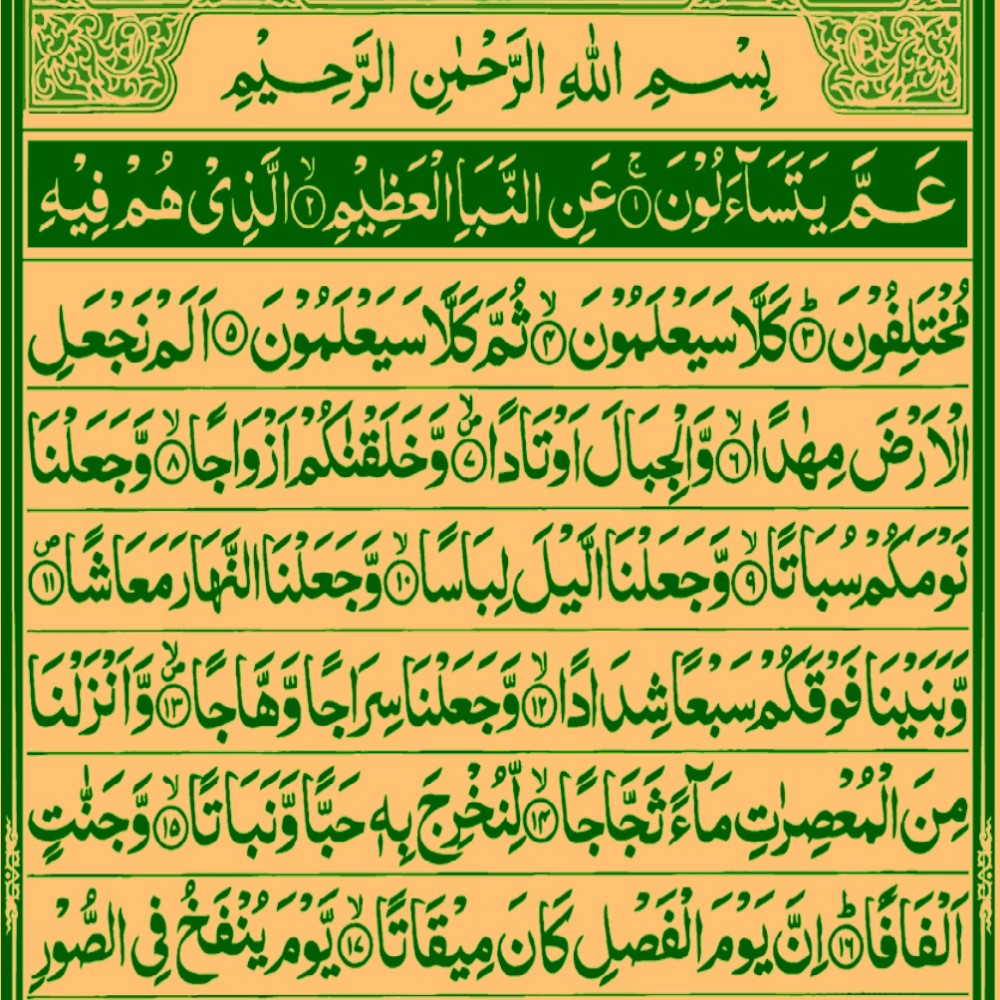 بِسْمِ اللّٰهِ الرَّحْمٰنِ الرَّحِیْمِ
عَمَّ یَتَسَآءَلُوْنَۚ۝۱ عَنِ النَّبَاِ الْعَظِیْمِۙ۝۲ الَّذِیْ هُمْ فِیْهِ
مُخْتَلِفُوْنَؕ۝۳ كَلَّا سَیَعْلَمُوْنَۙ۝۴ ثُمَّ كَلَّا سَیَعْلَمُوْنَ۝۵ اَلَمْ نَجْعَلِ
الْاَرْضَ مِهٰدًاۙ۝۶ وَّ الْجِبَالَ اَوْتَادًا۪ۙ۝۷ وَّ خَلَقْنٰكُمْ اَزْوَاجًاۙ۝۸ وَّ جَعَلْنَا
نَوْمَكُمْ سُبَاتًاۙ۝۹ وَّ جَعَلْنَا الَّیْلَ لِبَاسًاۙ۝۱۰ وَّ جَعَلْنَا النَّهَارَ مَعَاشًا۪۝۱۱
وَّ بَنَیْنَا فَوْقَكُمْ سَبْعًا شِدَادًاۙ۝۱۲ وَّ جَعَلْنَا سِرَاجًا وَّهَّاجًا۪ۙ۝۱۳ وَّ اَنْزَلْنَا
مِنَ الْمُعْصِرٰتِ مَآءً ثَجَّاجًاۙ۝۱۴ لِّنُخْرِجَ بِهٖ حَبًّا وَّ نَبَاتًاۙ۝۱۵ وَّ جَنّٰتٍ
اَلْفَافًاؕ۝۱۶ اِنَّ یَوْمَ الْفَصْلِ كَانَ مِیْقَاتًاۙ۝۱۷ یَّوْمَ یُنْفَخُ فِی الصُّوْرِ